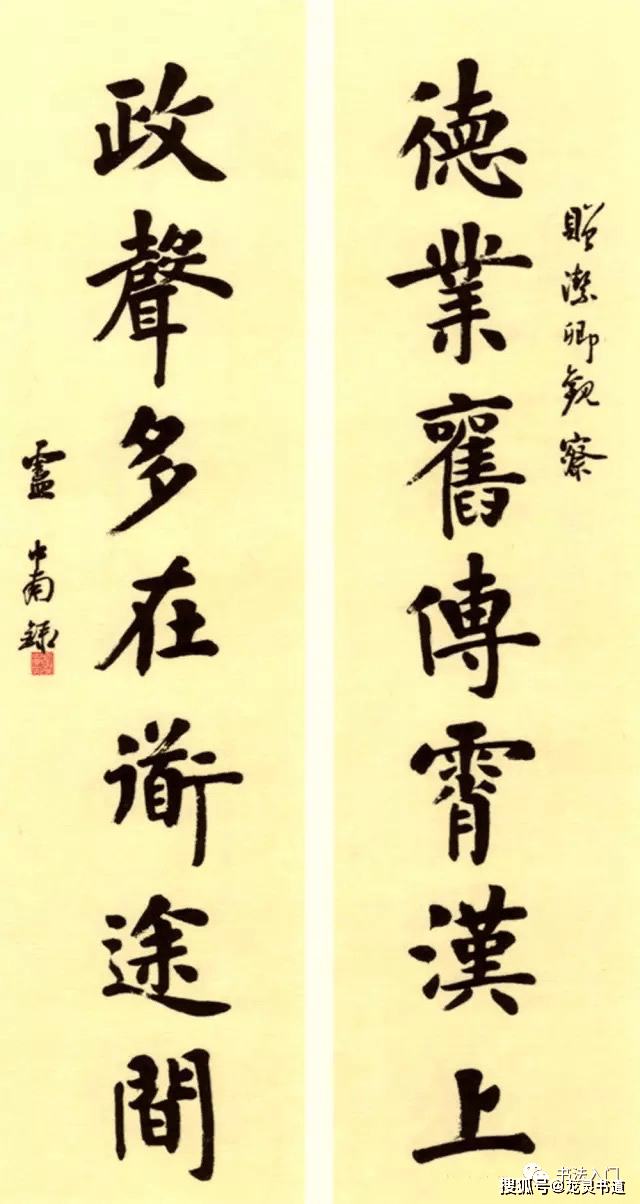 贈潔卿觀察
德業舊傳霄漢上
政聲多在衟途間
盧中南録
书法入门
搜狐号@龙灵书道